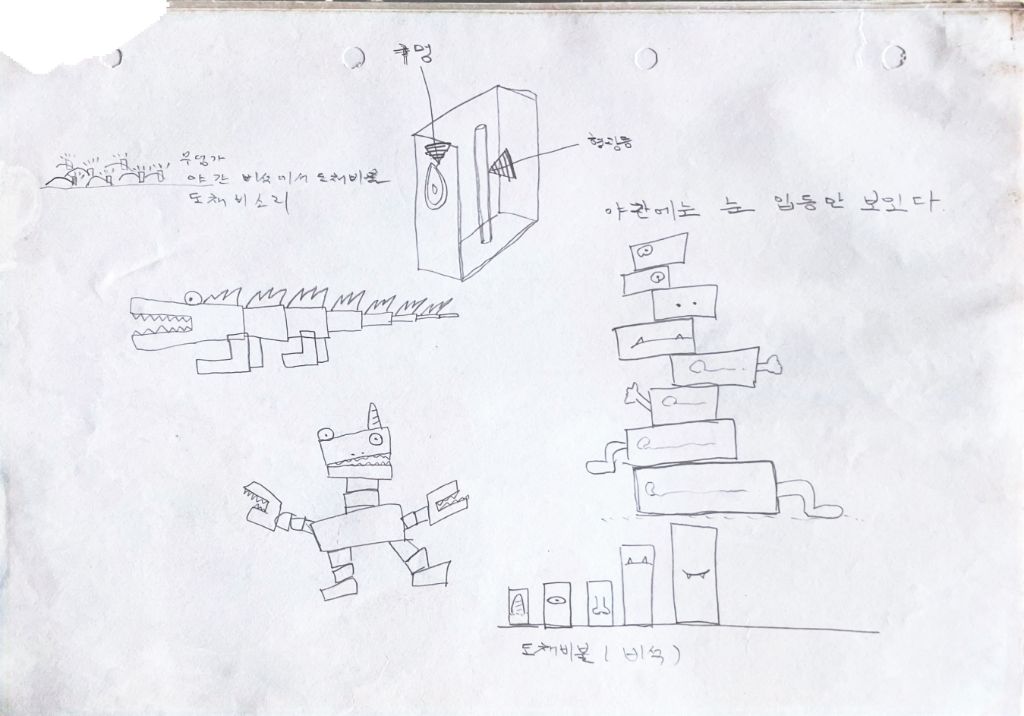 구멍
형광등
무덤가
야간 비석에서 도채비불
도채비소리
야간에는 눈 입등만 보인다.
도채비불 (비석)